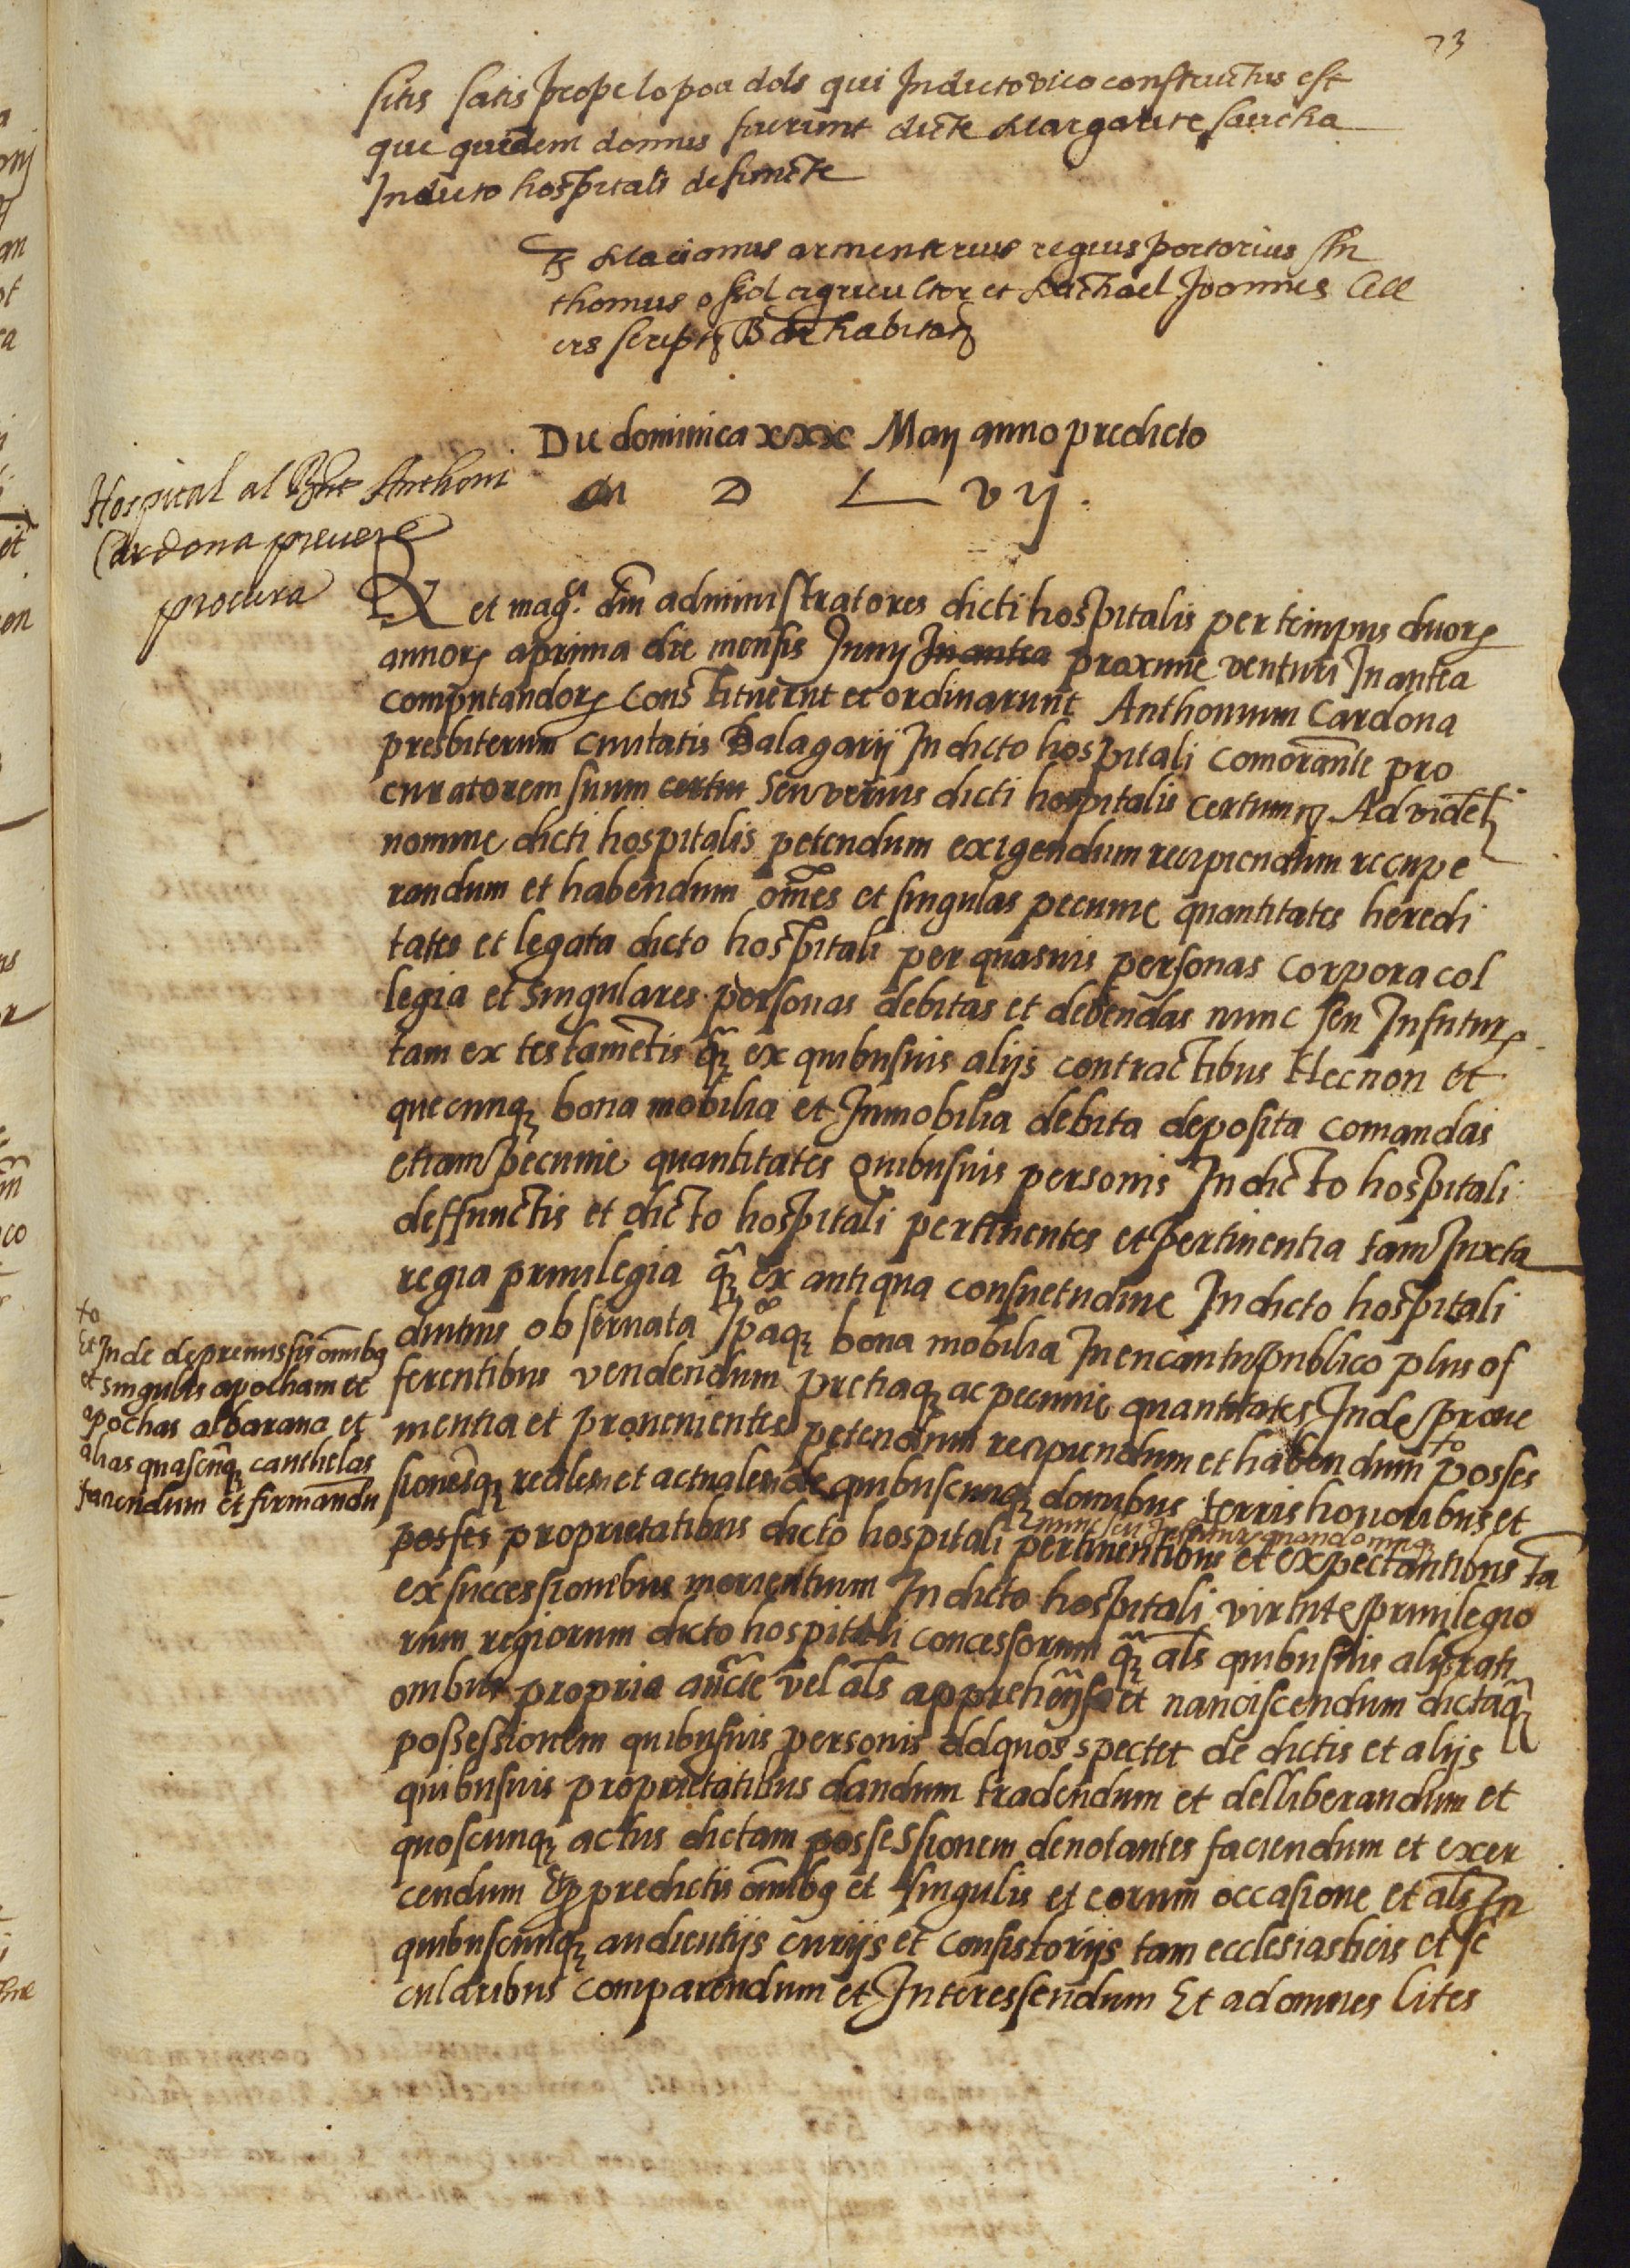 73
sitis satis prope lo pou dols qui In dicto vico constructus est
que quidem domus fuerunt dicte Margarite saucha
In dicto hospitali defuncte
Ts Macianus armenterius regius portorius An
thomus osid agricultor et Michael Joannes Cell
ers script Bar habitat
Die dominica xxx Maij anno predicto
M D L vij.
Hospital al R.nt Anthoni
Cardona prevere
procura
R et mag.ci dni administratores dicti hospitalis per tempus duor
annor a prima die mensis Junij In antea proxime venturi In antea
computandor Constituerunt et ordinarunt Anthonium Cardona
presbiterum civitatis Balagarij In dicto hospitali comorante pro
curatorem suum certu seu verius dicti hospitalis certum Ad videl
nomine dicti hospitalis petendum exigendum recipiendum recupe
randum et habendum omes et singulas pecunie quantitates heredi
tates et legata dicto hospitali per quasvis personas corpora col
legia et singulares personas debitas et debendas nunc seu In futur
tam ex testametis q̃ ex quibusvis alijs contractibus Necnon et
quecunq bona mobilia et Inmobilia debita deposita comandas
etiam pecunie quantitates quibusvis personis In dicto hospitali
deffunctis et dicto hospitali pertinentes et pertinentia tam Juxta
regia privilegia q̃ ex antiqua consuetudine In dicto hospitali
diutius observata Ipaq bona mobilia In encantu publico plus of
ferentibus vendendum pretiaq ac pecunie quantitates Inde prove
nientia et provenientes petendum recipiendum et habendum to posses
to
Et Inde de premissis omibq
et singulis apocham et
apochas albarana et
alias quascuq cauthelas
faciendum et firmandu
sionesq reales et actuales de quibuscunq domibus terris honoribus et
nunc seu In futur quandocunq
posses proprietatibus dicto hospitali pertinentibus et expectantibus ta
ex successionibus morientium In dicto hospitali virtute privilegio
rum regiorum dicto hospitali concessorum q̃ als quibusvis alijs rati
onibus propria aucte vel als apprehen et nanciscendum dictaq
possessionem quibusvis personis ad quos spectet de dictis et alijs
quibusvis proprietatibus dandum tradendum et delliberandum et
quoscunq actus dictam possessionem denotantes faciendum et exer
cendum Et p predictis omibq et singulis et eorum occasione et als In
quibuscunq audientijs curijs et consistorijs tam ecclesiasticis et se
cularibus comparendum et Interessendum Et ad omnes lites